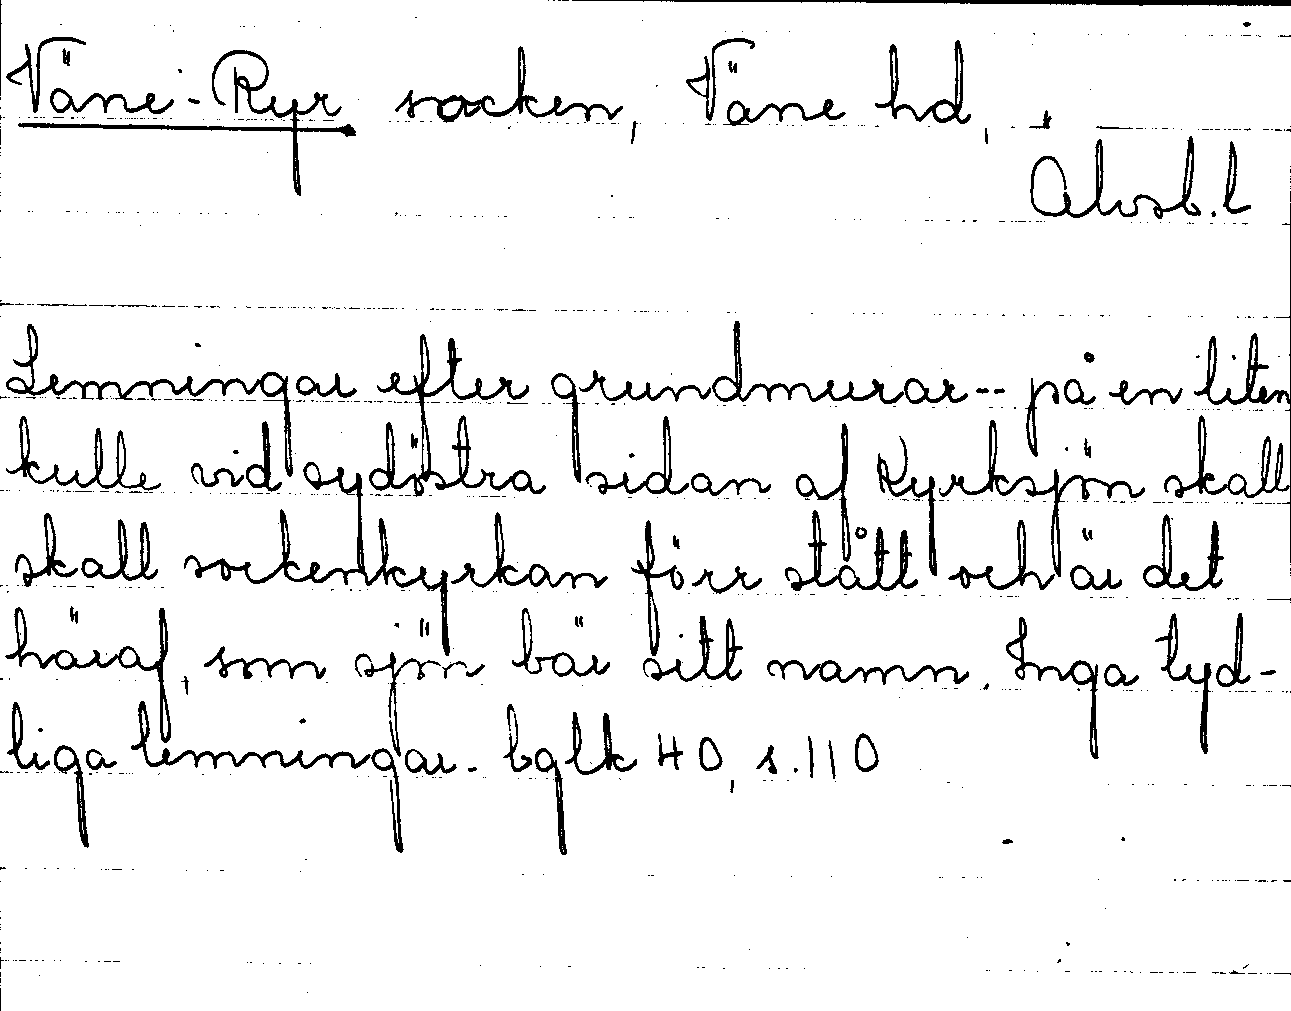 Väne-Ryr socken, Väne hd,
Älvsb.l
Lemningar efter grundmurar -- på en liten
kulle vid sydöstra sidan af Kyrksjön skall
skall sockenkyrkan förr stått och är det
häraf, som sjön bär sitt namn. Inga tyd-
liga lemningar. bglk 40, s.110